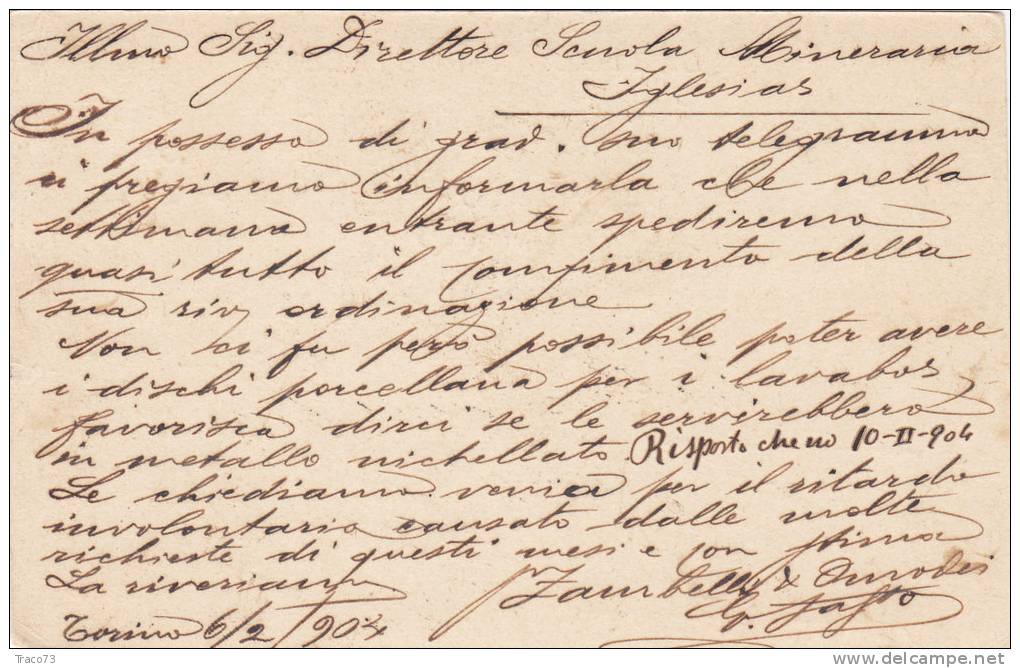 Illmo Sig. Direttore Scuola Mineraria
Iglesias
In possesso di grad. suo telegramma
ci pregiamo informarla che nella
settimana entrante spediremo
quasi tutto il compimento della
sua riv ordinazione
Non ci fu però possibile poter avere
i dischi porcellana per i lavabos
favorisca dirci se le servirebbero
in metallo nichellato Risposto che no 10-II-904
Le chiediamo venia per il ritardo
involontario causato dalle molte
richieste di questi mesi e con stima
La riveriamo Zambelli &
Torino 6/2/904
Traco73
delcampe.net